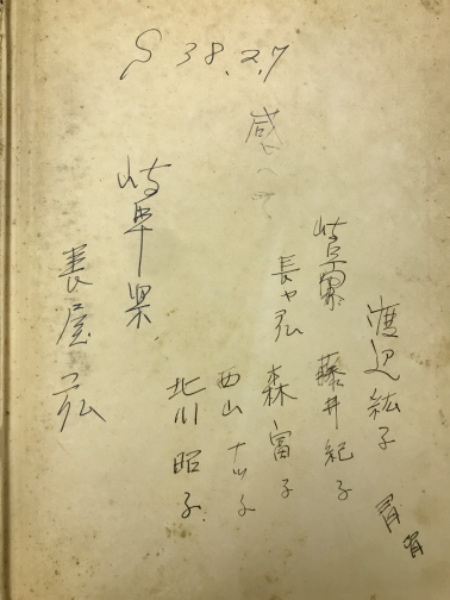 S 38.2.7
渡辺紘子
岐阜
藤井紀子
長や弘
森富子
感
西山ナツ子
北川昭子
岐阜県
長屋弘